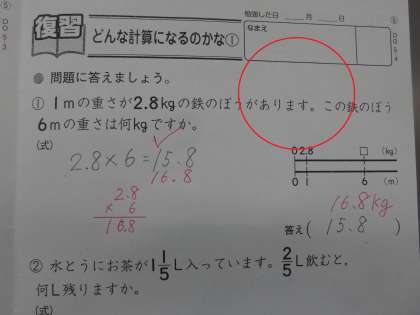 ⑤
勉強した日 月 日
復習
どんな計算になるのかな①
なまえ
⑤
● 問題に答えましょう。
① 1mの重さが2.8kgの鉄のぼうがあります。この鉄のぼう
6mの重さは何kgですか。
(式)
2.8×6=15.8
16.8
0 2.8 □ (kg)
0 1 6 (m)
2.8
× 6
16.8
16.8kg
答え( 15.8 )
② 水とうにお茶が1 1/5 L入っています。2/5 L飲むと,
何L残りますか。
(式)